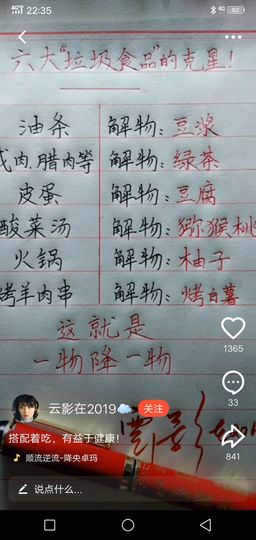 22:35
六大“垃圾食品”的克星!
油条 解物:豆浆
肉,腊肉等 解物:绿茶
皮蛋 解物:豆腐
酸菜汤 解物:猕猴桃
火锅 解物:柚子
烤羊肉串 解物:烤白薯
这就是
一物降一物
1365
33
云影在2019 关注
搭配着吃,有益于健康!
841
顺流逆流-降央卓玛
说点什么...